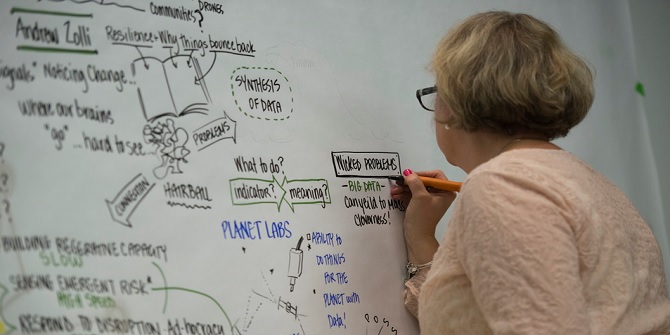 Communities?
DRONES
Andrew Zolli
Resilience - Why things bounce back
signals" Noticing Change..!
where our brains
"go" ... hard to see
PROBLEMS
CONNECTION
HAIRBALL
SYNTHESIS
OF DATA
What to do?
indicator?
meaning?
WICKED PROBLEMS
- BIG DATA -
Can yeild to MASS
CLOWNNESS!
PLANET LABS
ABILITY to
DO THINGS
FOR THE
PLANET with
Data!
BUILDING REGERATIVE CAPACITY
SLOW
SENSING EMERGENT RISK*
HIGH SPEED
RESPOND TO DISRUPTION - Ad-hocracy